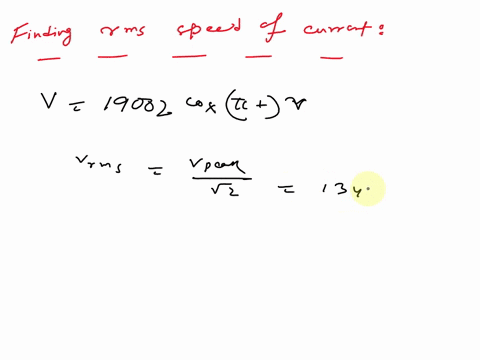 Finding rms speed of current:
V = 19002 cos (πt) v
Vrms = Vpeak / √2 = 134.